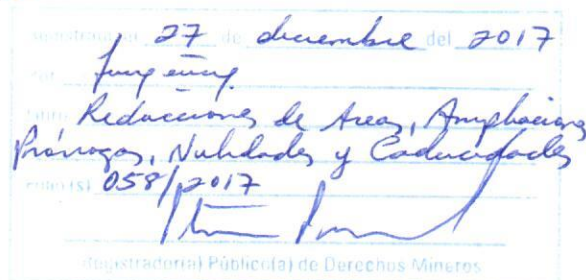 Registrado el 27 de diciembre del 2017
Redacciones de Areas, Ampliaciones
Prórrogas, Nulidades y Caducidades
Folio(s) 058/2017
Registrador(a) Público(a) de Derechos Mineros